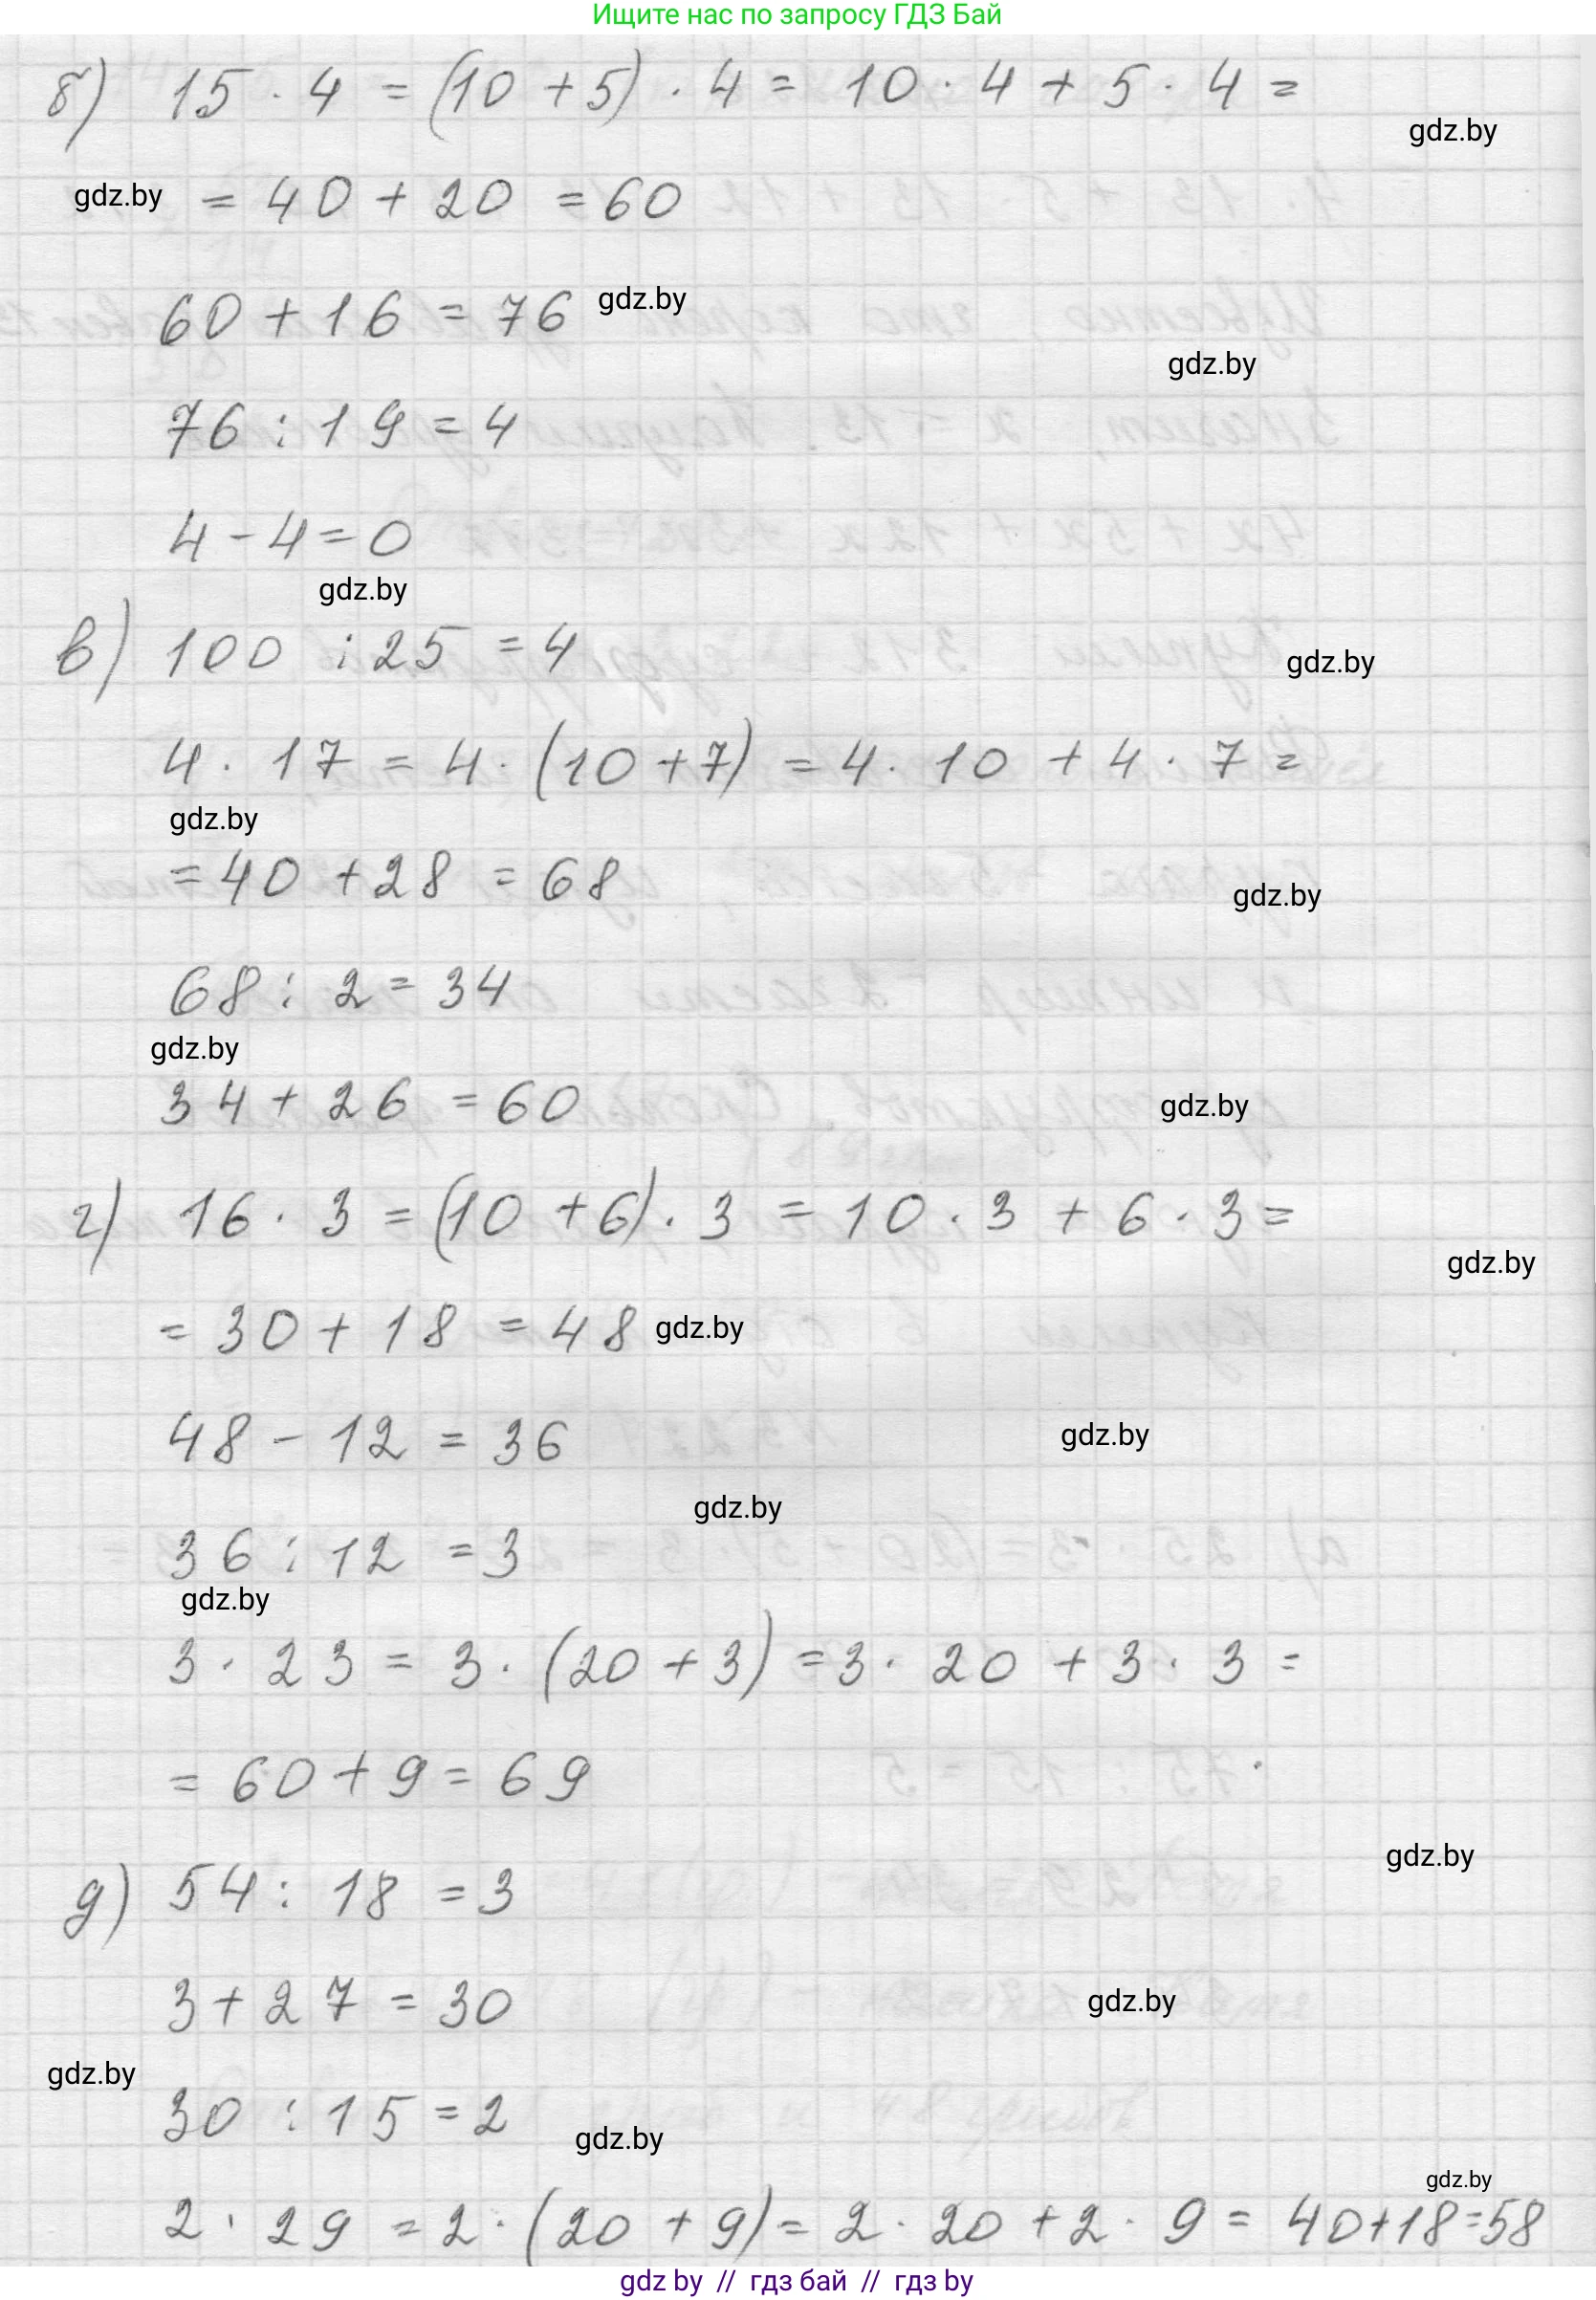 Ищите нас по запросу ГДЗ Бай
б) 15 · 4 = (10 + 5) · 4 = 10 · 4 + 5 · 4 =
gdz.by
gdz.by = 40 + 20 = 60
60 + 16 = 76 gdz.by
gdz.by
76 : 19 = 4
4 - 4 = 0
gdz.by
в) 100 : 25 = 4
gdz.by
4 · 17 = 4 · (10 + 7) = 4 · 10 + 4 · 7 =
gdz.by
= 40 + 28 = 68
gdz.by
68 : 2 = 34
gdz.by
34 + 26 = 60
gdz.by
г) 16 · 3 = (10 + 6) · 3 = 10 · 3 + 6 · 3 =
gdz.by
= 30 + 18 = 48 gdz.by
48 - 12 = 36
gdz.by
gdz.by
36 : 12 = 3
gdz.by
3 · 23 = 3 · (20 + 3) = 3 · 20 + 3 · 3 =
= 60 + 9 = 69
gdz.by
д) 54 : 18 = 3
3 + 27 = 30
gdz.by
gdz.by
30 : 15 = 2
gdz.by
gdz.by
2 · 29 = 2 · (20 + 9) = 2 · 20 + 2 · 9 = 40 + 18 = 58
gdz by // гдз бай // гдз by